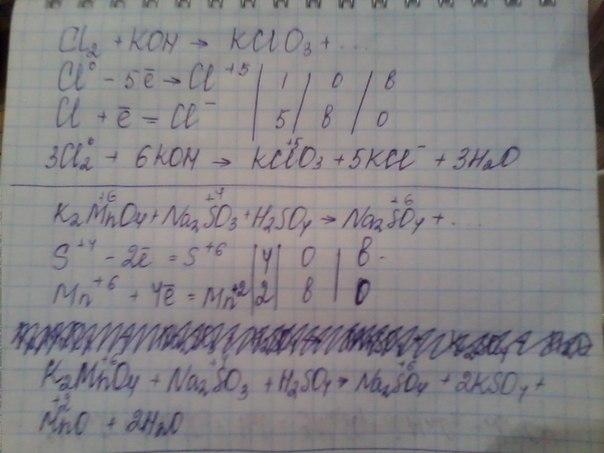 Cl₂ + KOH → KClO₃ + ...
Cl⁰ - 5ē → Cl⁺⁵ | 1 | 0 | в
Cl + ē = Cl⁻ | 5 | в | 0
3Cl₂⁰ + 6KOH → KCl⁺⁵O₃ + 5KCl⁻ + 3H₂O
K₂Mn⁺⁶O₄ + Na₂S⁺⁴O₃ + H₂SO₄ → Na₂S⁺⁶O₄ + ...
S⁺⁴ - 2ē = S⁺⁶ | 4 | 0 | в
Mn⁺⁶ + 4ē = Mn⁺² | 2 | в | 0
K₂Mn⁺⁶O₄ + Na₂S⁺⁴O₃ + H₂SO₄ → Na₂S⁺⁶O₄ + 2KSO₄ +
Mn⁺²O + 2H₂O